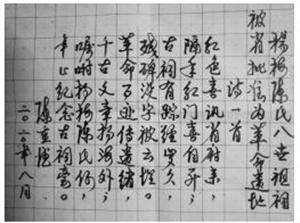 杨梅陈氏八世祖祠
被省批准为革命遗址
诗一首
红色喜讯省府来，
隔年红门喜自开，
古祠有踪经岁久，
残碑没字被云埋。
革命了迹传遗绪，
千古文章扬海外，
嘱咐杨梅陈氏何，
年之纪念古祠台。
陈
二〇二〇年八月